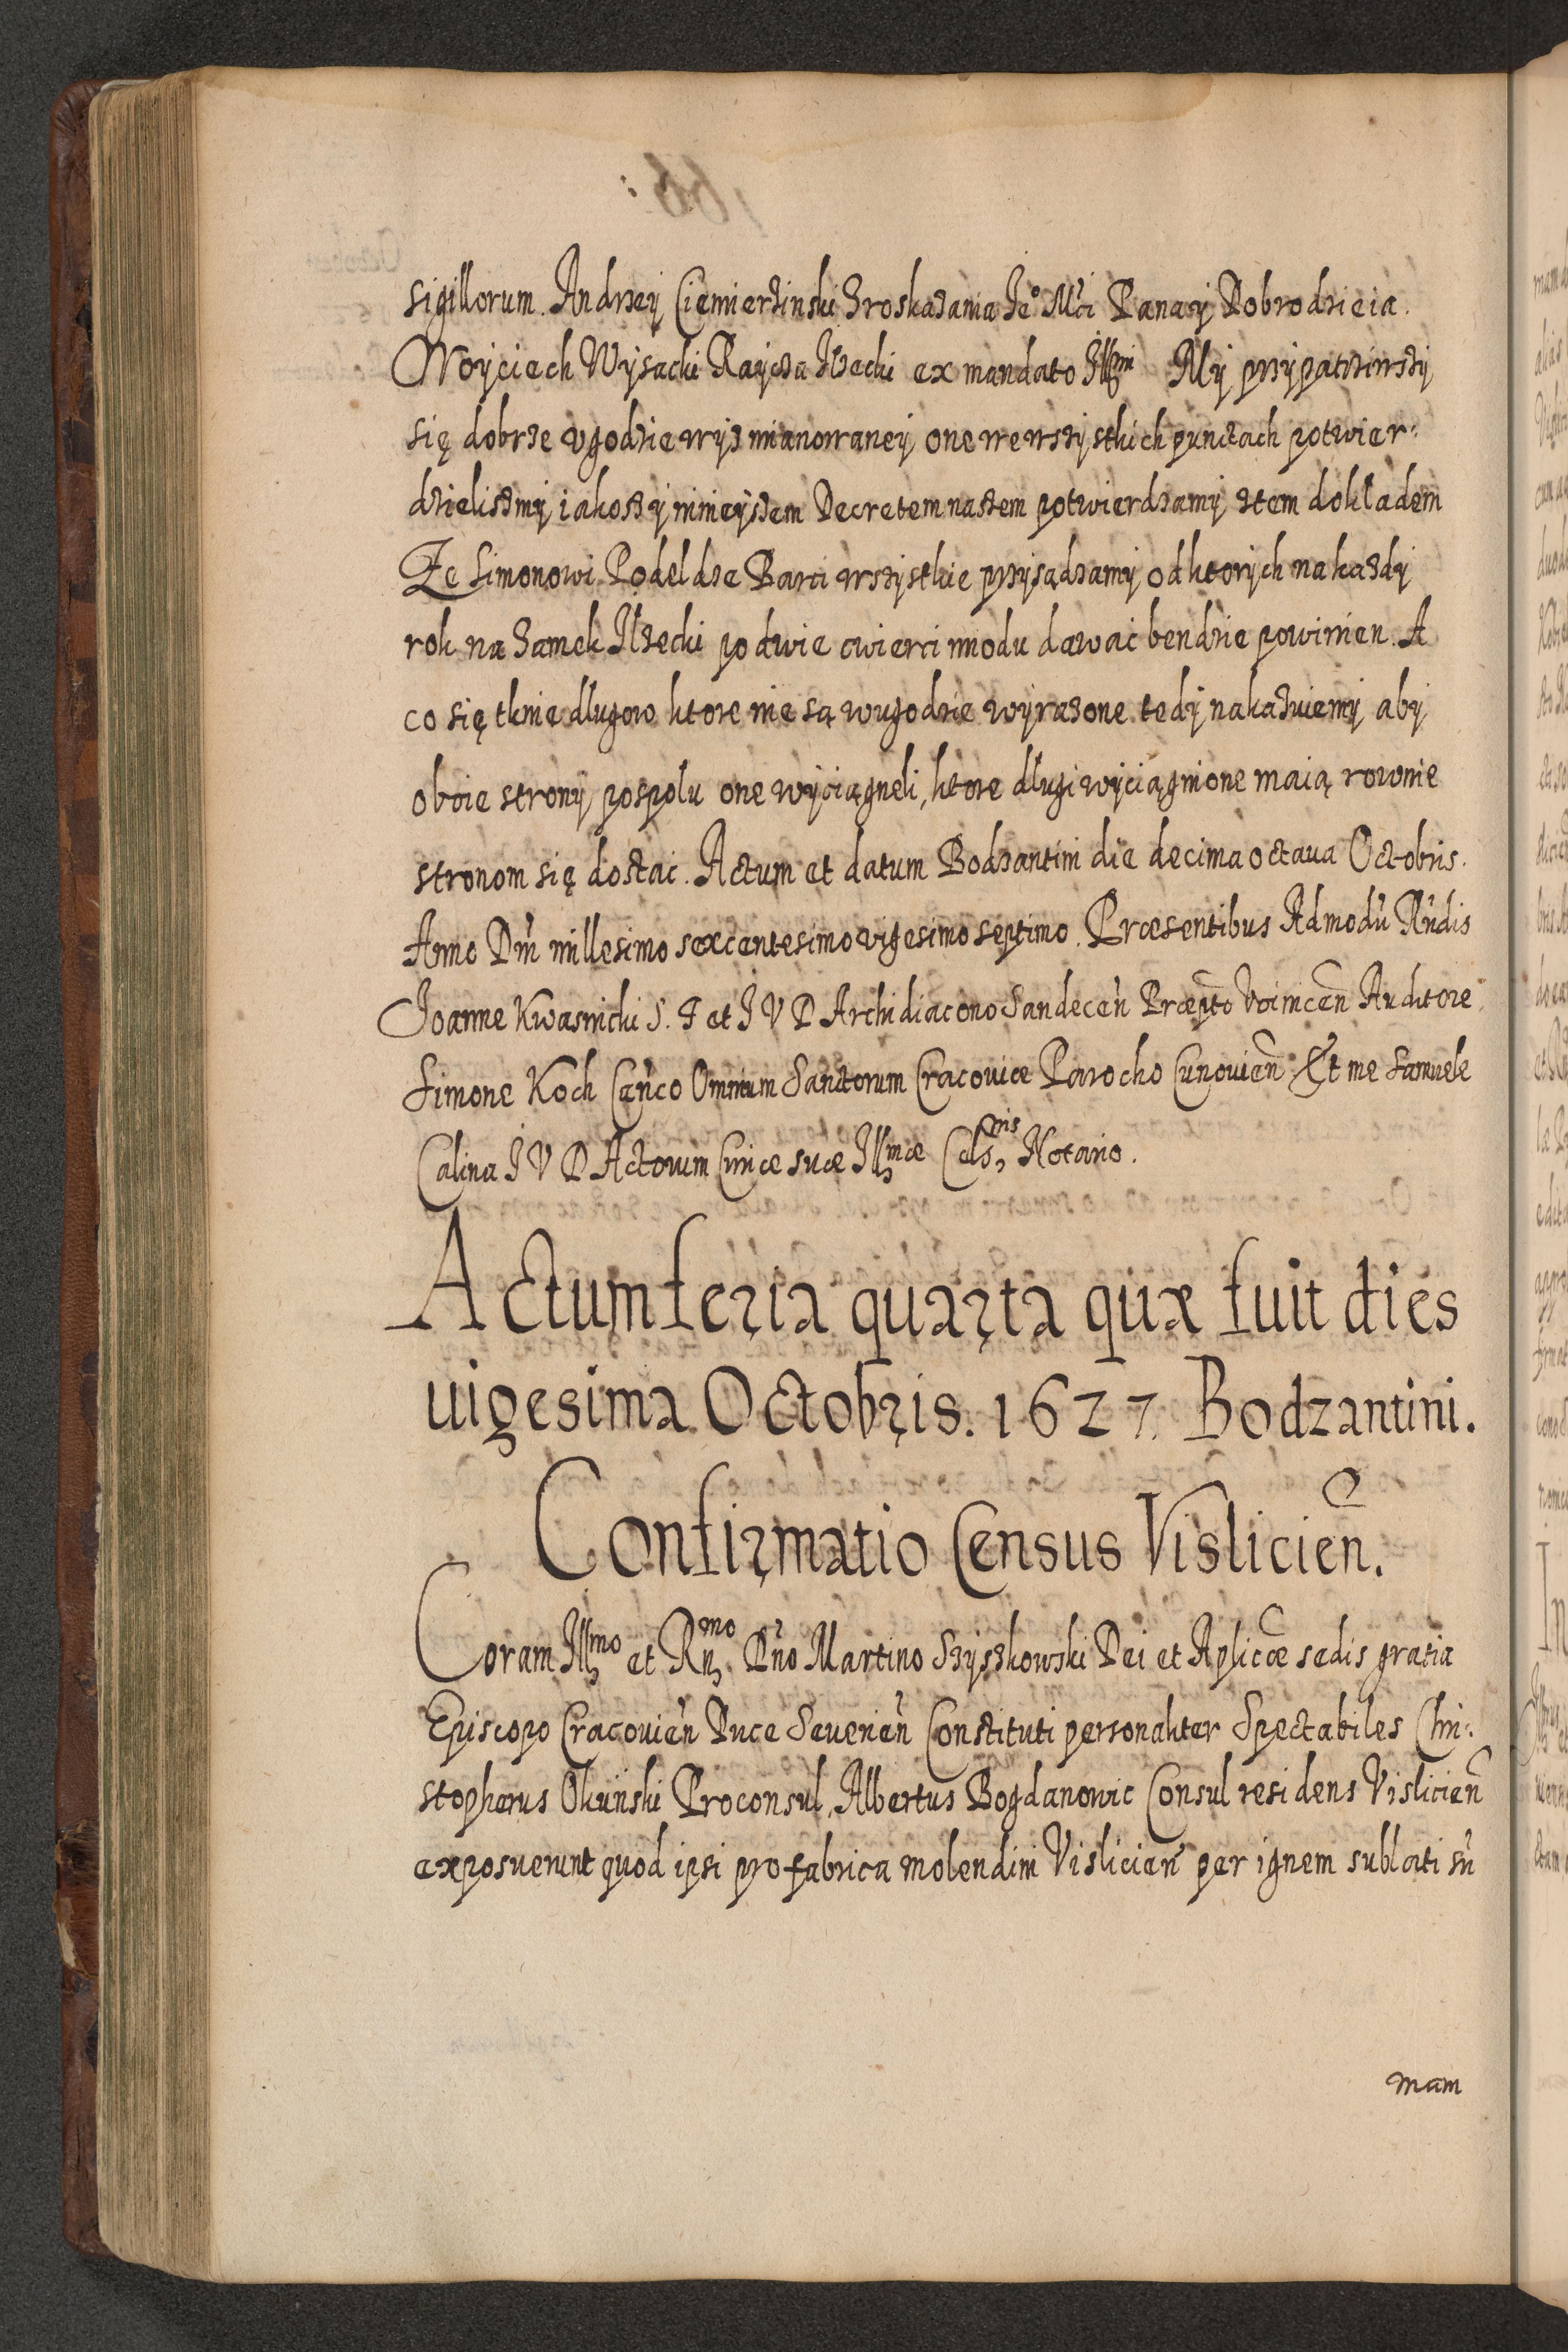 sigillorum. Andrzeÿ Ciemierzinski Zroskazania Je° Mći Panaÿ Dobrodzieia.
Woÿciech Wÿsacki Raÿcza Ilzecki ex mandato Illmi Mÿ przÿpatrziwszÿ
się dobrze vgodzie wÿz mianowaneÿ one wewszÿstkich punctach potwier:
dzielismÿ iakoszÿ ninieÿszem Decretem naszem potwierdzamÿ ztem dokładem
Ze Simonowi Podeldze Barci wszÿstkie przÿsądzamÿ od ktorÿch na kazdÿ
rok na Zamek Ilzecki po dwie cwierci miodu dawać bendzie powinien. A
co się tknie dlugow ktore nie są wugodzie wÿrazone tedÿ nakazuiemÿ abÿ
oboie stronÿ pospołu one wÿciągneli, ktore dlugi wÿciągnione maią rownie
stronom się dostać. Actum et datum Bodzantini die decima octaua Octobris.
Anno Dni millesimo sexcentesimo vigesimo septimo. Præsentibus Admodu Rndis
Joanne Kwasnicki S. T et J V D Archidiacono Sandecen Præpto Voinicen Auditore,
Simone Koch Canco Omnium Sanctorum Cracouiæ Parocho Cunouien Et me Samuele
Calina J V D Actorum Curiæ suæ Illmæ Cels,nis Notario.
Actum feria quarta quæ fuit dies
uigesima Octobris. 1627. Bodzantini.
Confirmatio Census Vislicien.
Coram Illmo et Rnmo Dno Martino Szÿszkowski Dei et Aplicæ sedis gratia
Episcopo Cracouien Duce Seuerien Constituti personaliter Spectabiles Chri:
stopherus Okunski Proconsul, Albertus Bogdanowic Consul residens Vislicien
exposuerunt quod ipsi pro fabrica molendini Vislicien per ignem sublati su
mam